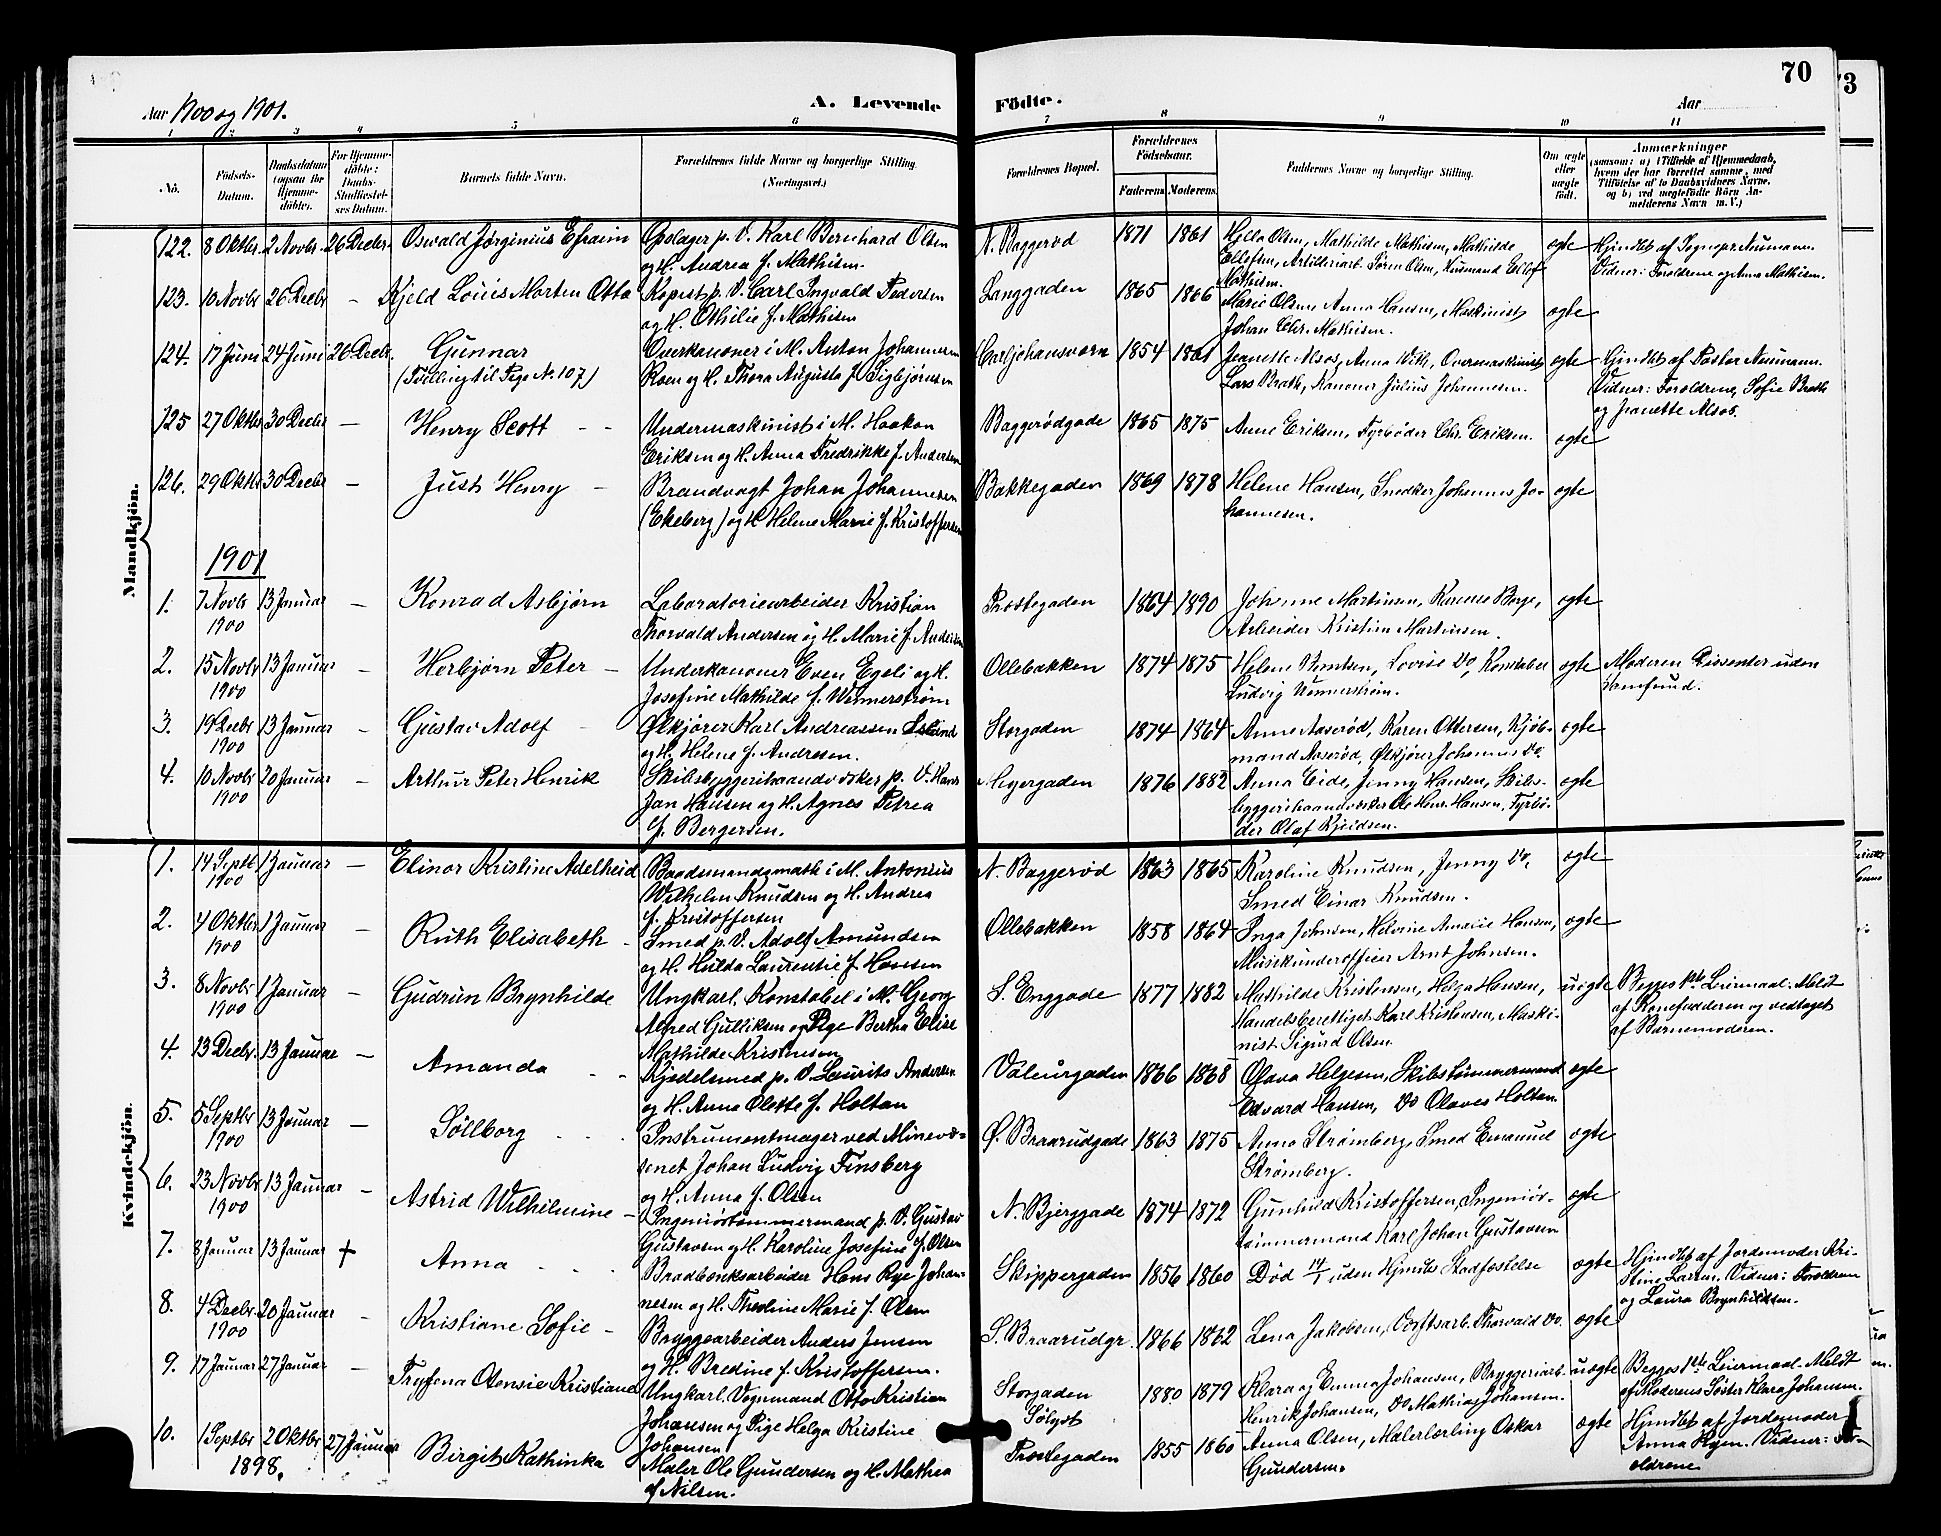 Aar 1900 og 1901.
A. Levende
Födte.
70
Aar
73
No.
Födsels-Datum.
Daabsdatum (ogsaa for Hjemme-döbte).
For Hjemme-döbte: Daabs-Stadfæstel-ses Datum.
Barnets fulde Navn.
Forældrenes fulde Navne og borgerlige Stilling. (Næringsvei.)
Forældrenes Bopæl.
Forældrenes Födselsaar.
Faderens. Moderens.
Faddernes Navne og borgerlige Stilling.
Om ægte eller uægte födt.
Anmærkninger
(saasom: a) i Tilfælde af Hjemmedaab, hvem der har forrettet samme, med Tilföielse af to Daabsvidners Navne, og b) ved uegtefödte Börn Anmelderens Navn m. V.)
Mandkjön.
122. 8 Oktbr. 2 Novbr. 26 Decbr. Oswald Jørginius Efraim Opslager p. V. Karl Bernhard Olsen N. Baggerød 1871 1861 Hilda Olsen, Mathilde Mathisen, Mathilde ægte Hjmdbt af Sognepr. Neumann.
og H. Andrea f. Mathisen. Ellefsen, Artilleriarb. Søren Olsen, Husmand Ellef Vidner: Forældrene og Anna Mathisen.
Mathisen.
123. 10 Novbr 26 Decbr – Kjeld Louis Morten Otto Kopist p. V. Carl Ingvald Pedersen Langgaden 1865 1866 Marie Olsen, Anna Hansen, Maskinist ægte
og H. Othilie f. Mathisen Johan Chr. Mathisen.
124. 17 Juni 24 Juni 26 Decbr. Gunnar Overkanoner i M. Anton Johannesen Carljohansværn 1854 1861 Jeanette Alsos, Anna With, Overmaskinist ægte Hjmdbt af Pastor Neumann.
(Tvilling til Pige N. 107) Roen og H. Thora Augusta f. Sigbjørnsen Lars Brath, Kanoner Julius Johannesen. Vidner: Forældrene, Sofie Brath
og Jeanette Alsos.
125 27 Oktbr 30 Decbr – Henry Scott Undermaskinist i M. Haakon Baggerødgade 1865 1875 Anne Eriksen, Fyrbøder Chr. Eriksen. ægte
Eriksen og H. Anna Fredrikke f. Andersen
126. 29 Oktbr 30 Decbr – Just Henry Brandvagt Johan Johannesen Bakkegaden 1869 1878 Helene Hansen, Snedker Johannes Jo- ægte
(Ekeberg) og H Helene Marie f. Kristoffersen hannesen.
1901
1. 7 Novbr 13 Januar – Konrad Asbjørn Laboratoriearbeider Kristian Prostegaden 1864 1890 Johanne Martinsen, Karense Borge, ægte
1900 Thorvald Andersen og H. Marie f. Andersen Arbeider Kristian Martinsen.
2. 15 Novbr 13 Januar – Herbjørn Peter – Underkanoner Even Egeli og H. Ollebakken 1874 1875 Helene Berntsen, Lovise Do, Konstabel ægte Moderen Dissenter uden
1900 Josefine Mathilde f. Wennerstrøm Ludvig Wennerstrøm. Samfund.
3. 19 Decbr 13 Januar – Gustav Adolf Ølkjører Karl Andreassen Storgaden 1874 1864 Anne Aaserød, Karen Ottersen, Kjøb- ægte
1900 og H. Helene f. Andresen. mand Aaserød, Ølkjører Johannes Do.
4. 10 Novbr 20 Januar – Arthur Peter Henrik Skibsbyggerihaandværker p. V. Hans Meyergaden 1876 1882 Anna Eide, Jenny Hansen, Skibs- ægte
1900 Jan Hansen og H. Agnes Petrea byggerihaandværker Ole Hans Hansen, Fyrbø-
f. Bergersen. der Olaf Kjeldsen.
Kvindekjön.
1. 14 Septbr 1 Januar – Elinor Kristine Adelheid Baadsmandsmath i M. Antonius N. Baggerød 1863 1865 Karoline Knudsen, Jenny Do, ægte
1900 Wilhelm Knudsen og H. Andrea Smed Einar Knudsen.
f. Kristoffersen
2. 4 Oktbr 1 Januar – Ruth Elisabeth Smed p. V. Adolf Amundsen Ollebakken 1858 1864 Inga Johnsen, Helvine Amalie Hansen, ægte
1900 og H. Hulda Laurentie f. Hansen Musikunderofficer Arnt Johnsen.
3. 8 Novbr 1 Januar – Gudrun Brynhilde Ungkarl, Konstabel i M. Georg S. Enggade 1877 1882 Mathilde Kristensen, Helga Hansen, uægte Begges 1ste Leiermaal. Meldt
1900 Alfred Gulliksen og Pige Bertha Elise Handelsberettiget Karl Kristensen, Maski- af Konefadderen og vedtaget
Mathilde Kristensen nist Sigurd Olsen af Barnemoderen.
4. 13 Decbr. 13 Januar – Amanda Kjedelsmed p. V. Laurits Andersen Valeurgaden 1866 1868 Olava Helgesen, Skibstømmermand ægte
og H. Anna Olette f. Holtan Edvard Hansen, Do Olaves Holtan
5. 5 Septbr 13 Januar – Søllborg Instrumentmager ved Minevæ- Ø. Braarudgade 1863 1875 Anna Strømberg, Smed Emanuel ægte
1900 senet Johan Ludvig Finsberg Strømberg.
og H. Anna f. Olsen
6. 23 Novbr 13 Januar – Astrid Wilhelmine – Ingeniørtømmermand p. V. Gustav N. Bjerggade 1874 1872 Gunhild Kristoffersen, Ingeniør- ægte
1900 Gustavsen og H. Karoline Josefine f. Olsen tømmermand Karl Johan Gustavsen
7. 8 Januar 13 Januar + Anna Bradbænksarbeider Hans Rye Johan- Skippergaden 1856 1860 Død 14/1 uden Hjmdbs Stadfæstelse ægte Hjmdbt af Jordemoder Kri-
nesen og H. Theoline Marie f. Olsen stine Larsen. Vidner: Forældrene
og Laura Brynhildsen.
8. 4 Decbr 20 Januar – Kristiane Sofie – Bryggearbeider Anders Jensen S. Braarudgr. 1866 1862 Lena Jakobsen, Værftsarb. Thorvald Do. ægte
1900 og H. Bredine f. Kristoffersen.
9. 17 Januar 27 Januar – Tryfena Olensie Kristiane Ungkarl, Vognmand Otto Kristian Storgaden 1880 1879 Klara og Emma Johansen, Bryggeriarb. uægte Begges 1ste Leiermaal. Meldt
Johansen og Pige Helga Kristine Solyst Henrik Johansen, Do Mathias Johansen. af Moderens Søster Klara Johansen.
Johansen
10. 1 Septbr 2 Oktbr 27 Januar Birgit Kathinka Maler Ole Gundersen og H. Mathea Prostegaden 1855 1860 Anna Olsen, Malerlærling Oskar ægte Hjmdbt af Jordemoder
1898. f. Nilsen. Gundersen. Anna Hyen. Vidner: For-
ældrene